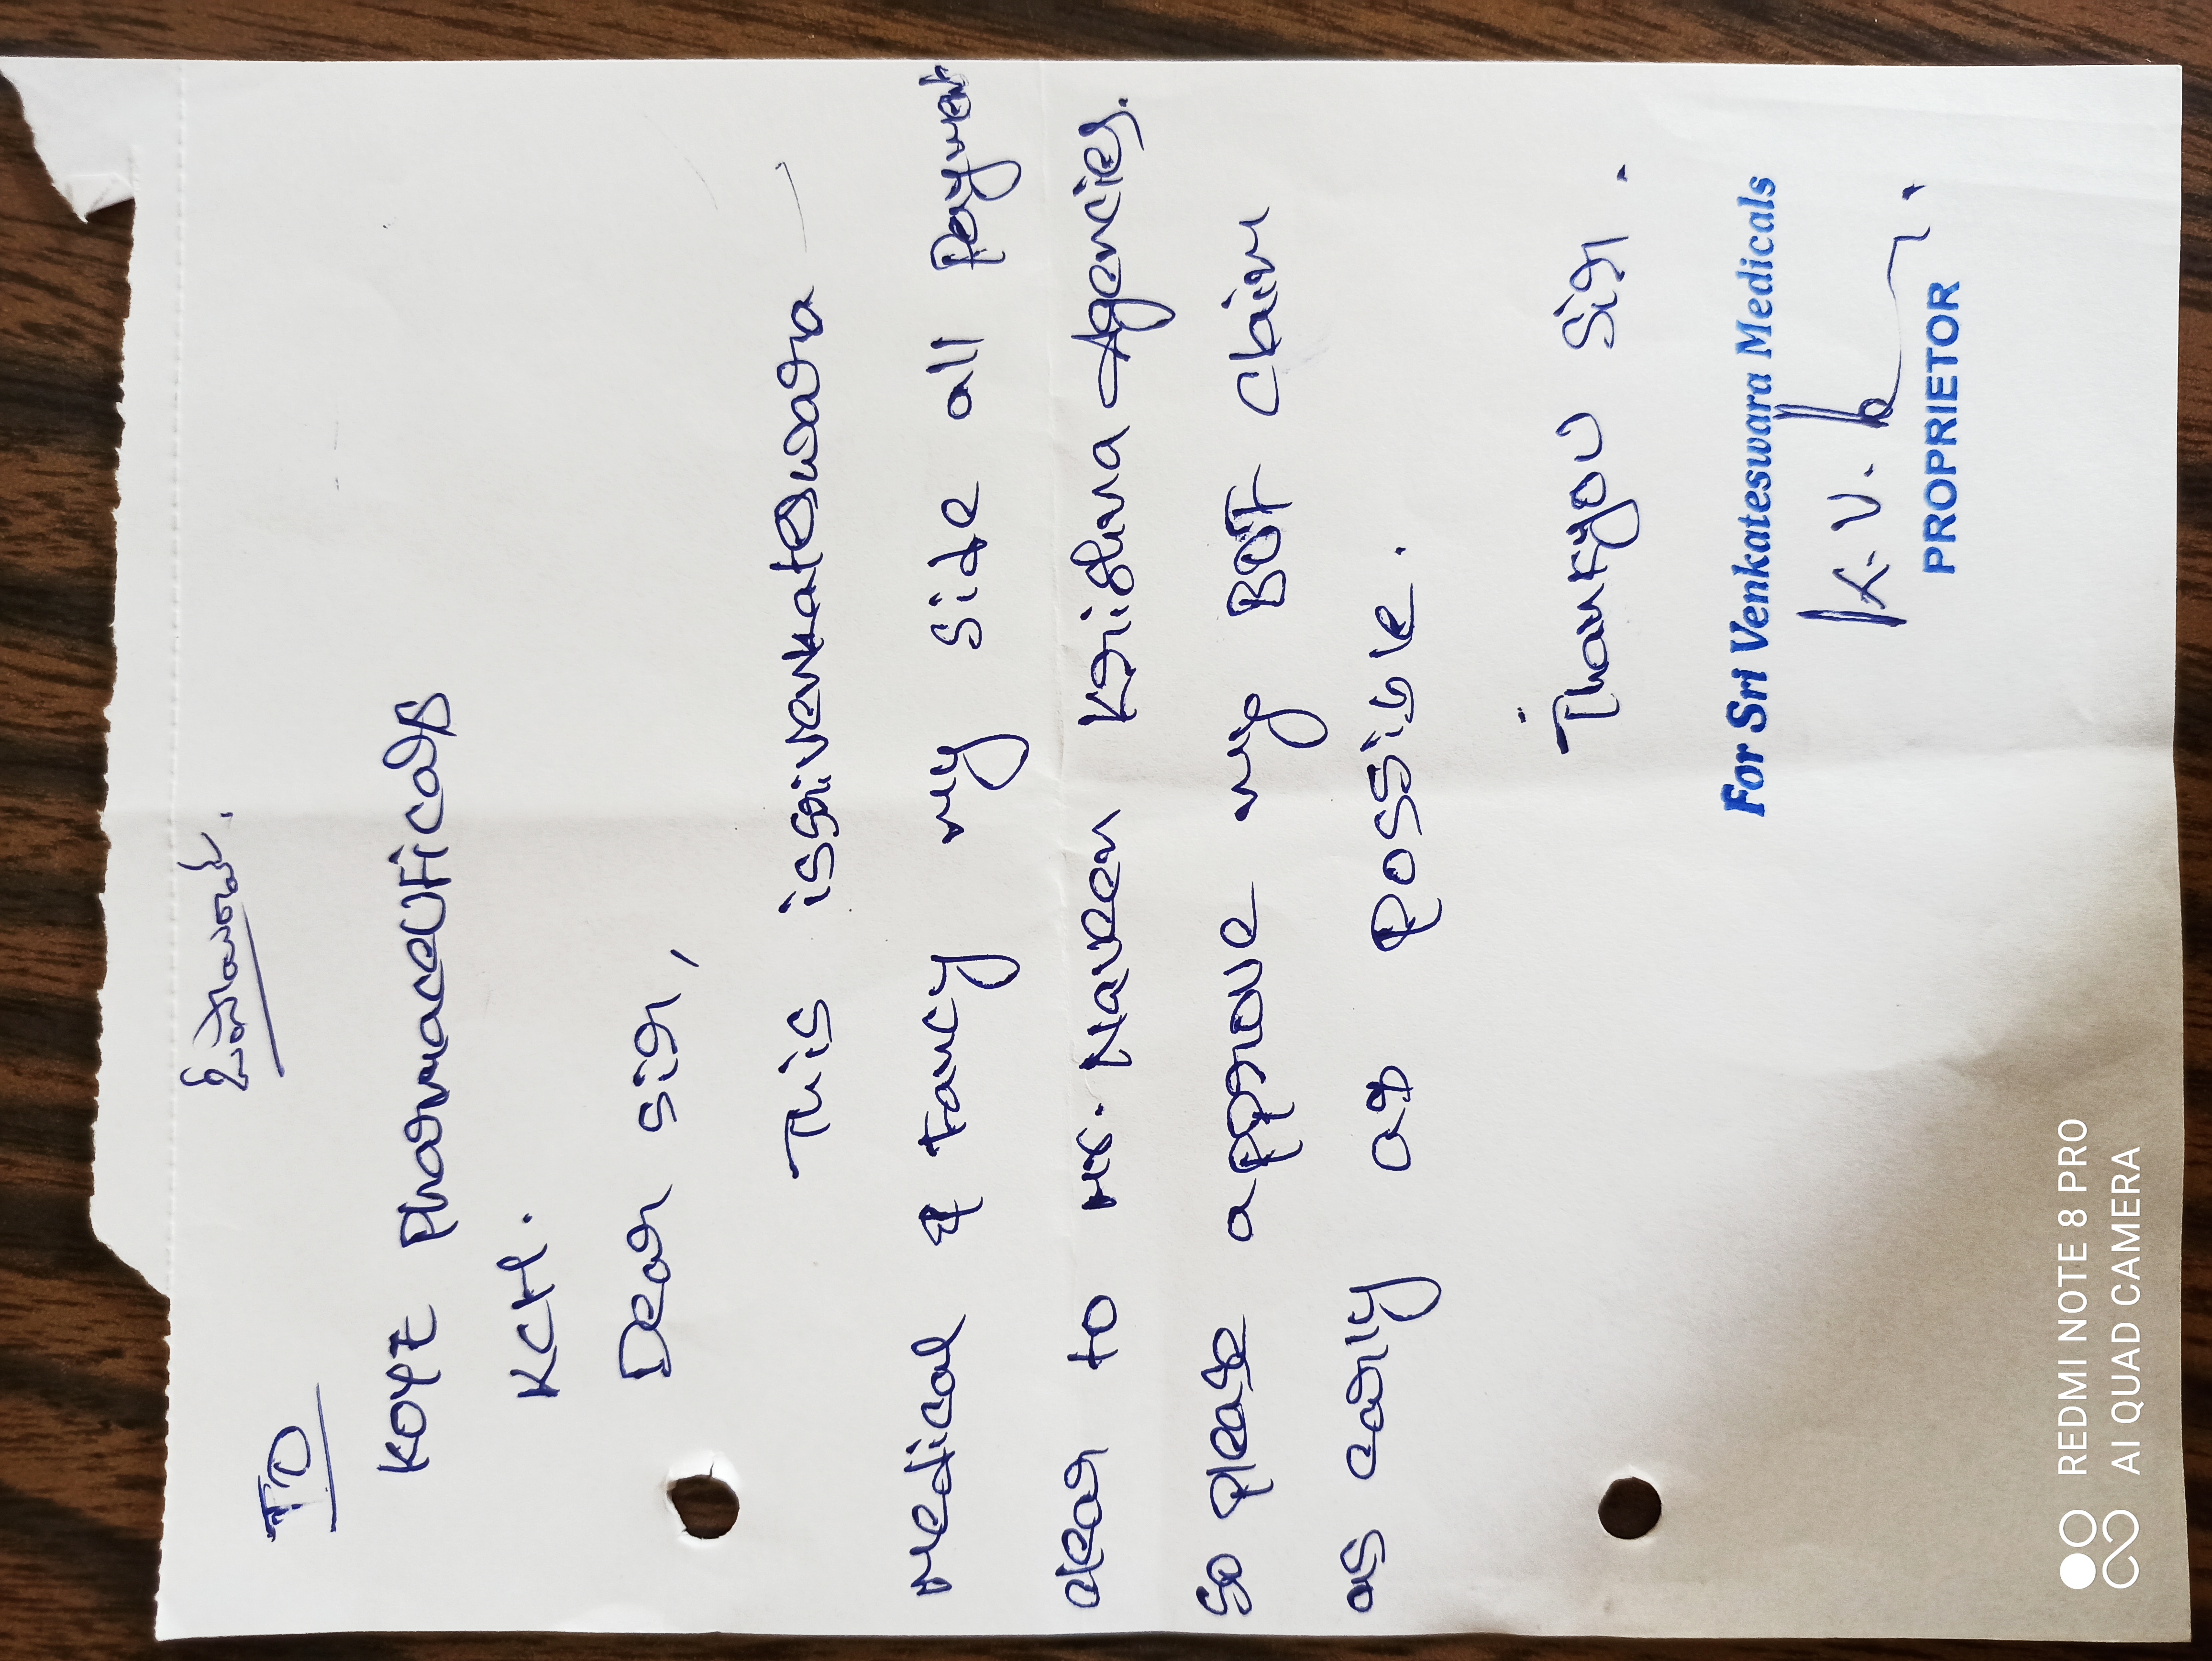 TO
KOPE Pharmaceuticals
KCH.
Dear Sir,
This is Srivenkateswara
medical & fancy my side all Payment
clear to Mr. Naveen Krishna Agencies.
So please approve my BOT claim
as early as possible.
Thankyou Sir.
For Sri Venkateswara Medicals
K.V.
PROPRIETOR
REDMI NOTE 8 PRO
AI QUAD CAMERA